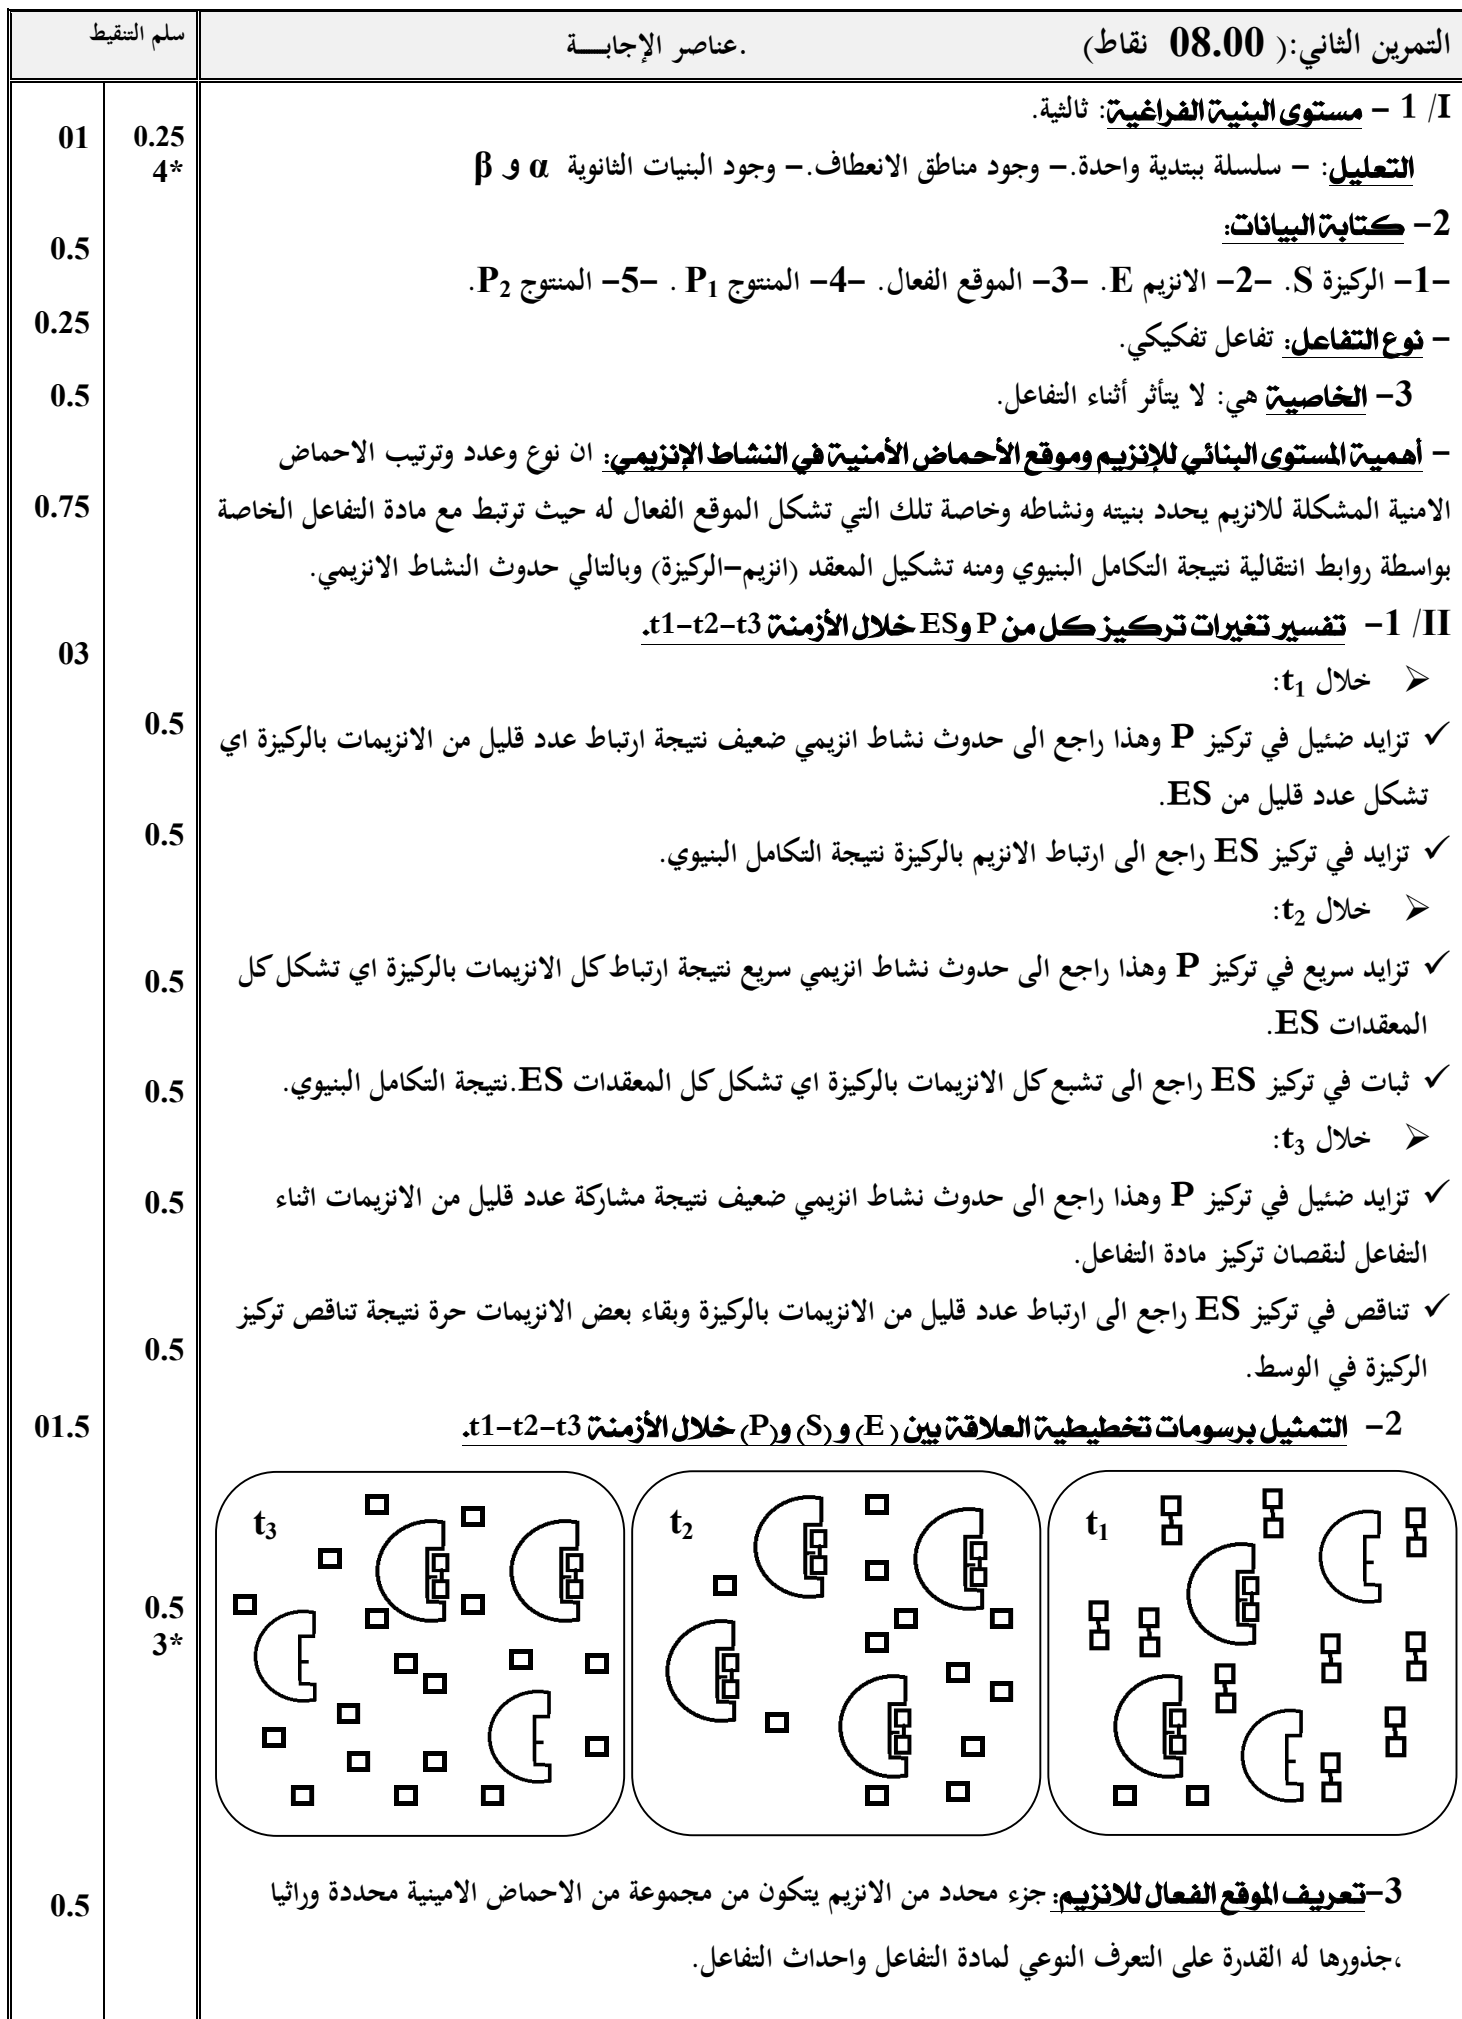 التمرين الثاني:( 08.00 نقاط) .عناصر الإجابـــة سلم التنقيط
I/ 1 – مستوى البنية الفراغية: ثالثية.
01 0.25
4*
التعليل: – سلسلة ببتدية واحدة.– وجود مناطق الانعطاف.– وجود البنيات الثانوية α و β
2– كتابة البيانات:
0.5
–1– الركيزة S. –2– الانزيم E. –3– الموقع الفعال. –4– المنتوج P1 . –5– المنتوج P2.
0.25
– نوع التفاعل: تفاعل تفكيكي.
3– الخاصية هي: لا يتأثر أثناء التفاعل.
0.5
– أهمية المستوى البنائي للإنزيم وموقع الأحماض الأمنية في النشاط الإنزيمي: ان نوع وعدد وترتيب الاحماض
الامنية المشكلة للانزيم يحدد بنيته ونشاطه وخاصة تلك التي تشكل الموقع الفعال له حيث ترتبط مع مادة التفاعل الخاصة
0.75
بواسطة روابط انتقالية نتيجة التكامل البنيوي ومنه تشكيل المعقد (انزيم–الركيزة) وبالتالي حدوث النشاط الانزيمي.
II/ 1– تفسير تغيرات تركيز كل من P وES خلال الأزمنة t1–t2–t3.
03
➢ خلال t1:
✓ تزايد ضئيل في تركيز P وهذا راجع الى حدوث نشاط انزيمي ضعيف نتيجة ارتباط عدد قليل من الانزيمات بالركيزة اي
0.5
تشكل عدد قليل من ES.
✓ تزايد في تركيز ES راجع الى ارتباط الانزيم بالركيزة نتيجة التكامل البنيوي.
0.5
➢ خلال t2:
✓ تزايد سريع في تركيز P وهذا راجع الى حدوث نشاط انزيمي سريع نتيجة ارتباط كل الانزيمات بالركيزة اي تشكل كل
0.5
المعقدات ES.
✓ ثبات في تركيز ES راجع الى تشبع كل الانزيمات بالركيزة اي تشكل كل المعقدات ES.نتيجة التكامل البنيوي.
0.5
➢ خلال t3:
✓ تزايد ضئيل في تركيز P وهذا راجع الى حدوث نشاط انزيمي ضعيف نتيجة مشاركة عدد قليل من الانزيمات اثناء
0.5
التفاعل لنقصان تركيز مادة التفاعل.
✓ تناقص في تركيز ES راجع الى ارتباط عدد قليل من الانزيمات بالركيزة وبقاء بعض الانزيمات حرة نتيجة تناقص تركيز
0.5
الركيزة في الوسط.
2– التمثيل برسومات تخطيطية العلاقة بين (E) و (S) و(P) خلال الأزمنة t1–t2–t3.
01.5
t1 t2 t3
0.5
3*
3–تعريف الموقع الفعال للانزيم: جزء محدد من الانزيم يتكون من مجموعة من الاحماض الامينية محددة وراثيا
0.5
،جذورها له القدرة على التعرف النوعي لمادة التفاعل واحداث التفاعل.